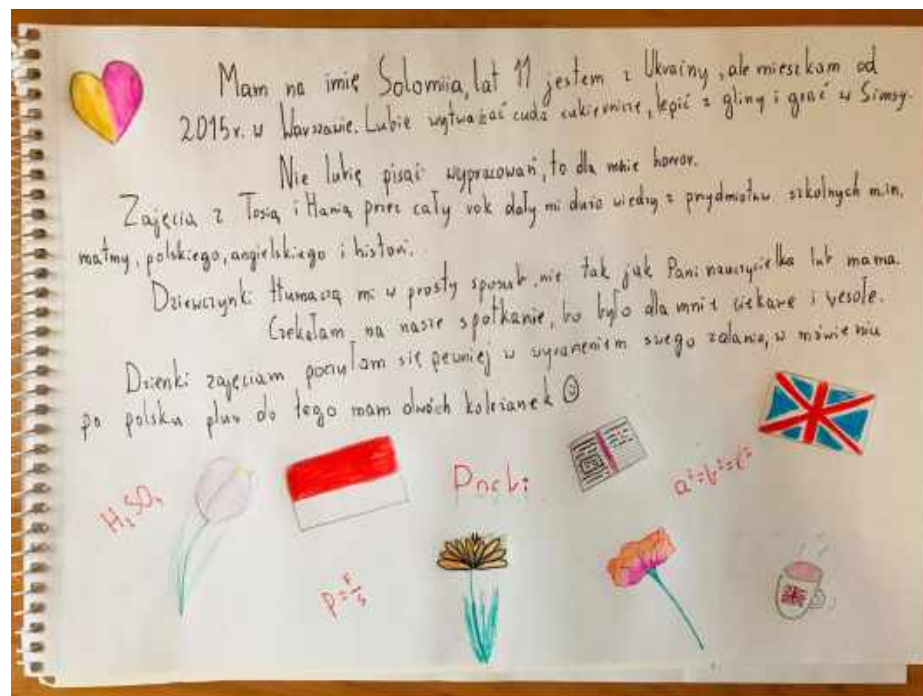 Mam na imię Solomiia, lat 11 jestem z Ukrainy, ale mieszkam od
2015r. w Warszawie. Lubię wytważać cuda cukiernicze, lepić z gliny i grać w Simsy.
Nie lubię pisać wypracowań, to dla mnie horror.
Zajęcia z Tosią i Hanią przez cały rok dały mi dużo wiedzy z prydmiotuw szkolnych m.in.
matmy, polskiego, angielskiego i histori.
Dziewczynki tłumaczą mi w prosty sposub, nie tak jak Pani nauczycielka lub mama.
Czekałam na nasze spotkanie, bo było dla mnie ciekawe i vesołe.
Dzienki zajęciam poczułam się pewniej w wyraneniem swego zdania, w mówieniu
po polsku plus do tego mam dwóch koleżanek
H₂SO₄
p=F/s